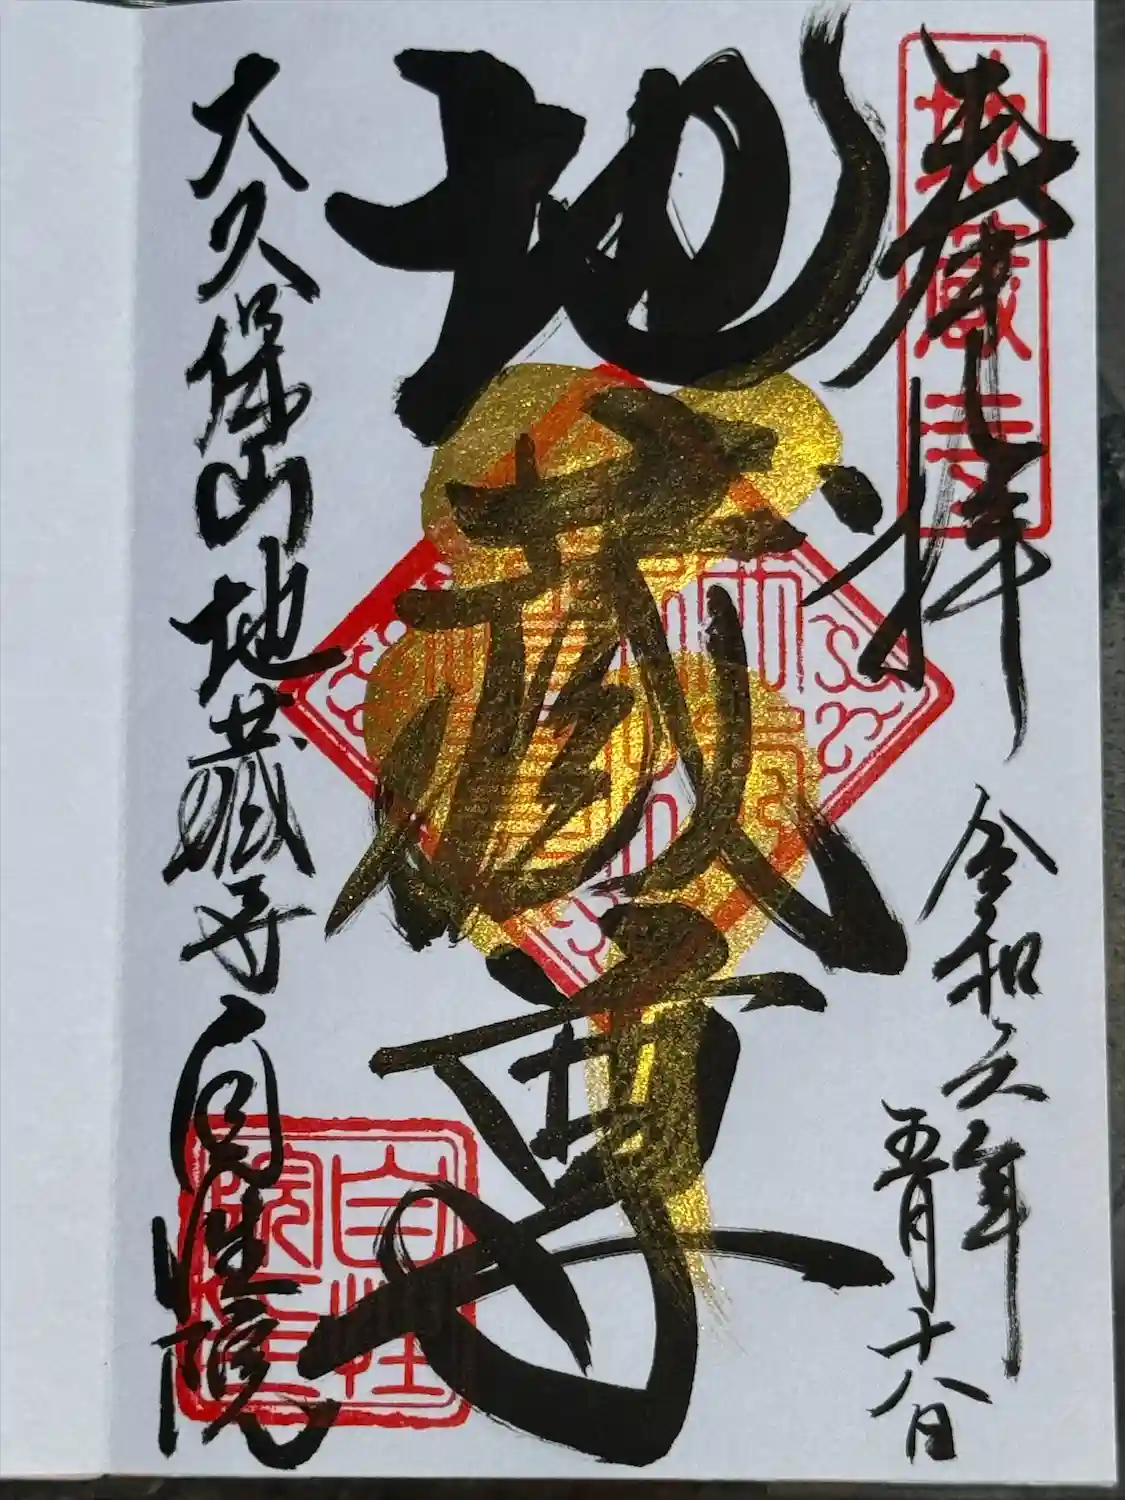 地蔵寺
奉拝
令和六年
五月十八日
地蔵尊
大久保山地蔵寺自性院
自性院印